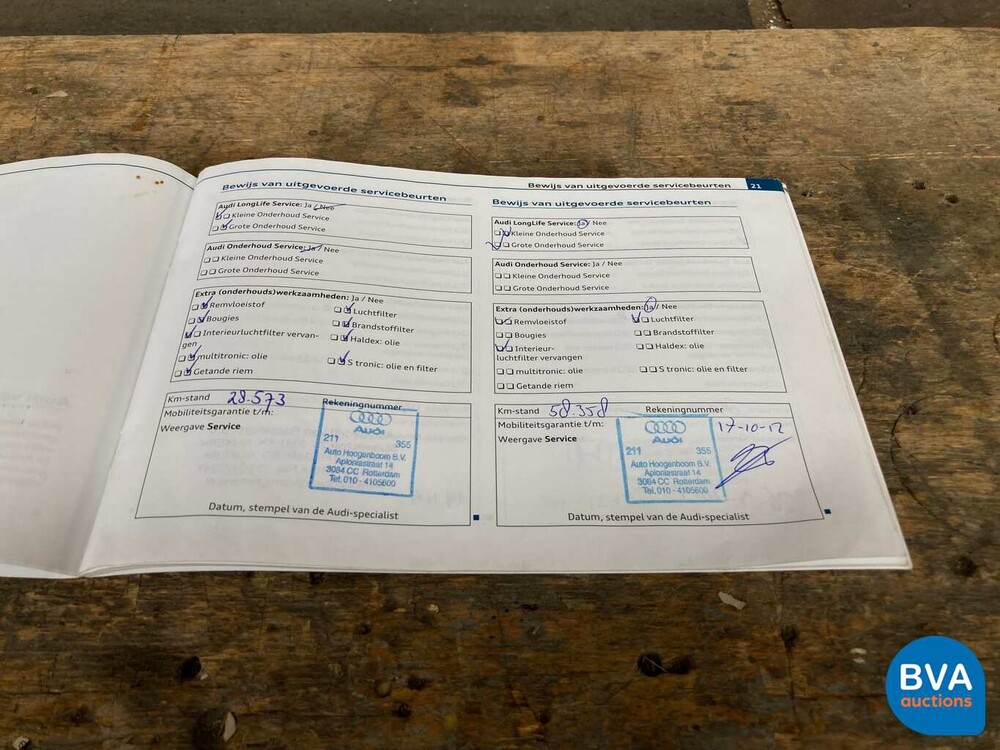 Bewijs van uitgevoerde servicebeurten
Audi LongLife Service: Ja / Nee
Kleine Onderhoud Service
Grote Onderhoud Service
Audi Onderhoud Service: Ja / Nee
Kleine Onderhoud Service
Grote Onderhoud Service
Extra (onderhouds)werkzaamheden: Ja / Nee
Remvloeistof
Luchtfilter
Bougies
Brandstoffilter
Interieurluchtfilter vervan-
gen
Haldex: olie
multitronic: olie
S tronic: olie en filter
Getande riem
Km-stand 28.573 Rekeningnummer
Mobiliteitsgarantie t/m:
Weergave Service
Audi
211 355
Auto Hoogenboom B.V.
Aploniastraat 14
3084 CC Rotterdam
Tel. 010 - 4105600
Datum, stempel van de Audi-specialist
Bewijs van uitgevoerde servicebeurten 21
Bewijs van uitgevoerde servicebeurten
Audi LongLife Service: Ja / Nee
Kleine Onderhoud Service
Grote Onderhoud Service
Audi Onderhoud Service: Ja / Nee
Kleine Onderhoud Service
Grote Onderhoud Service
Extra (onderhouds)werkzaamheden: Ja / Nee
Remvloeistof
Luchtfilter
Bougies
Brandstoffilter
Interieur-
luchtfilter vervangen
Haldex: olie
multitronic: olie
S tronic: olie en filter
Getande riem
Km-stand 58.358 Rekeningnummer
Mobiliteitsgarantie t/m:
Weergave Service
17-10-12
Audi
211 355
Auto Hoogenboom B.V.
Aploniastraat 14
3084 CC Rotterdam
Tel. 010 - 4105600
Datum, stempel van de Audi-specialist
BVA
auctions